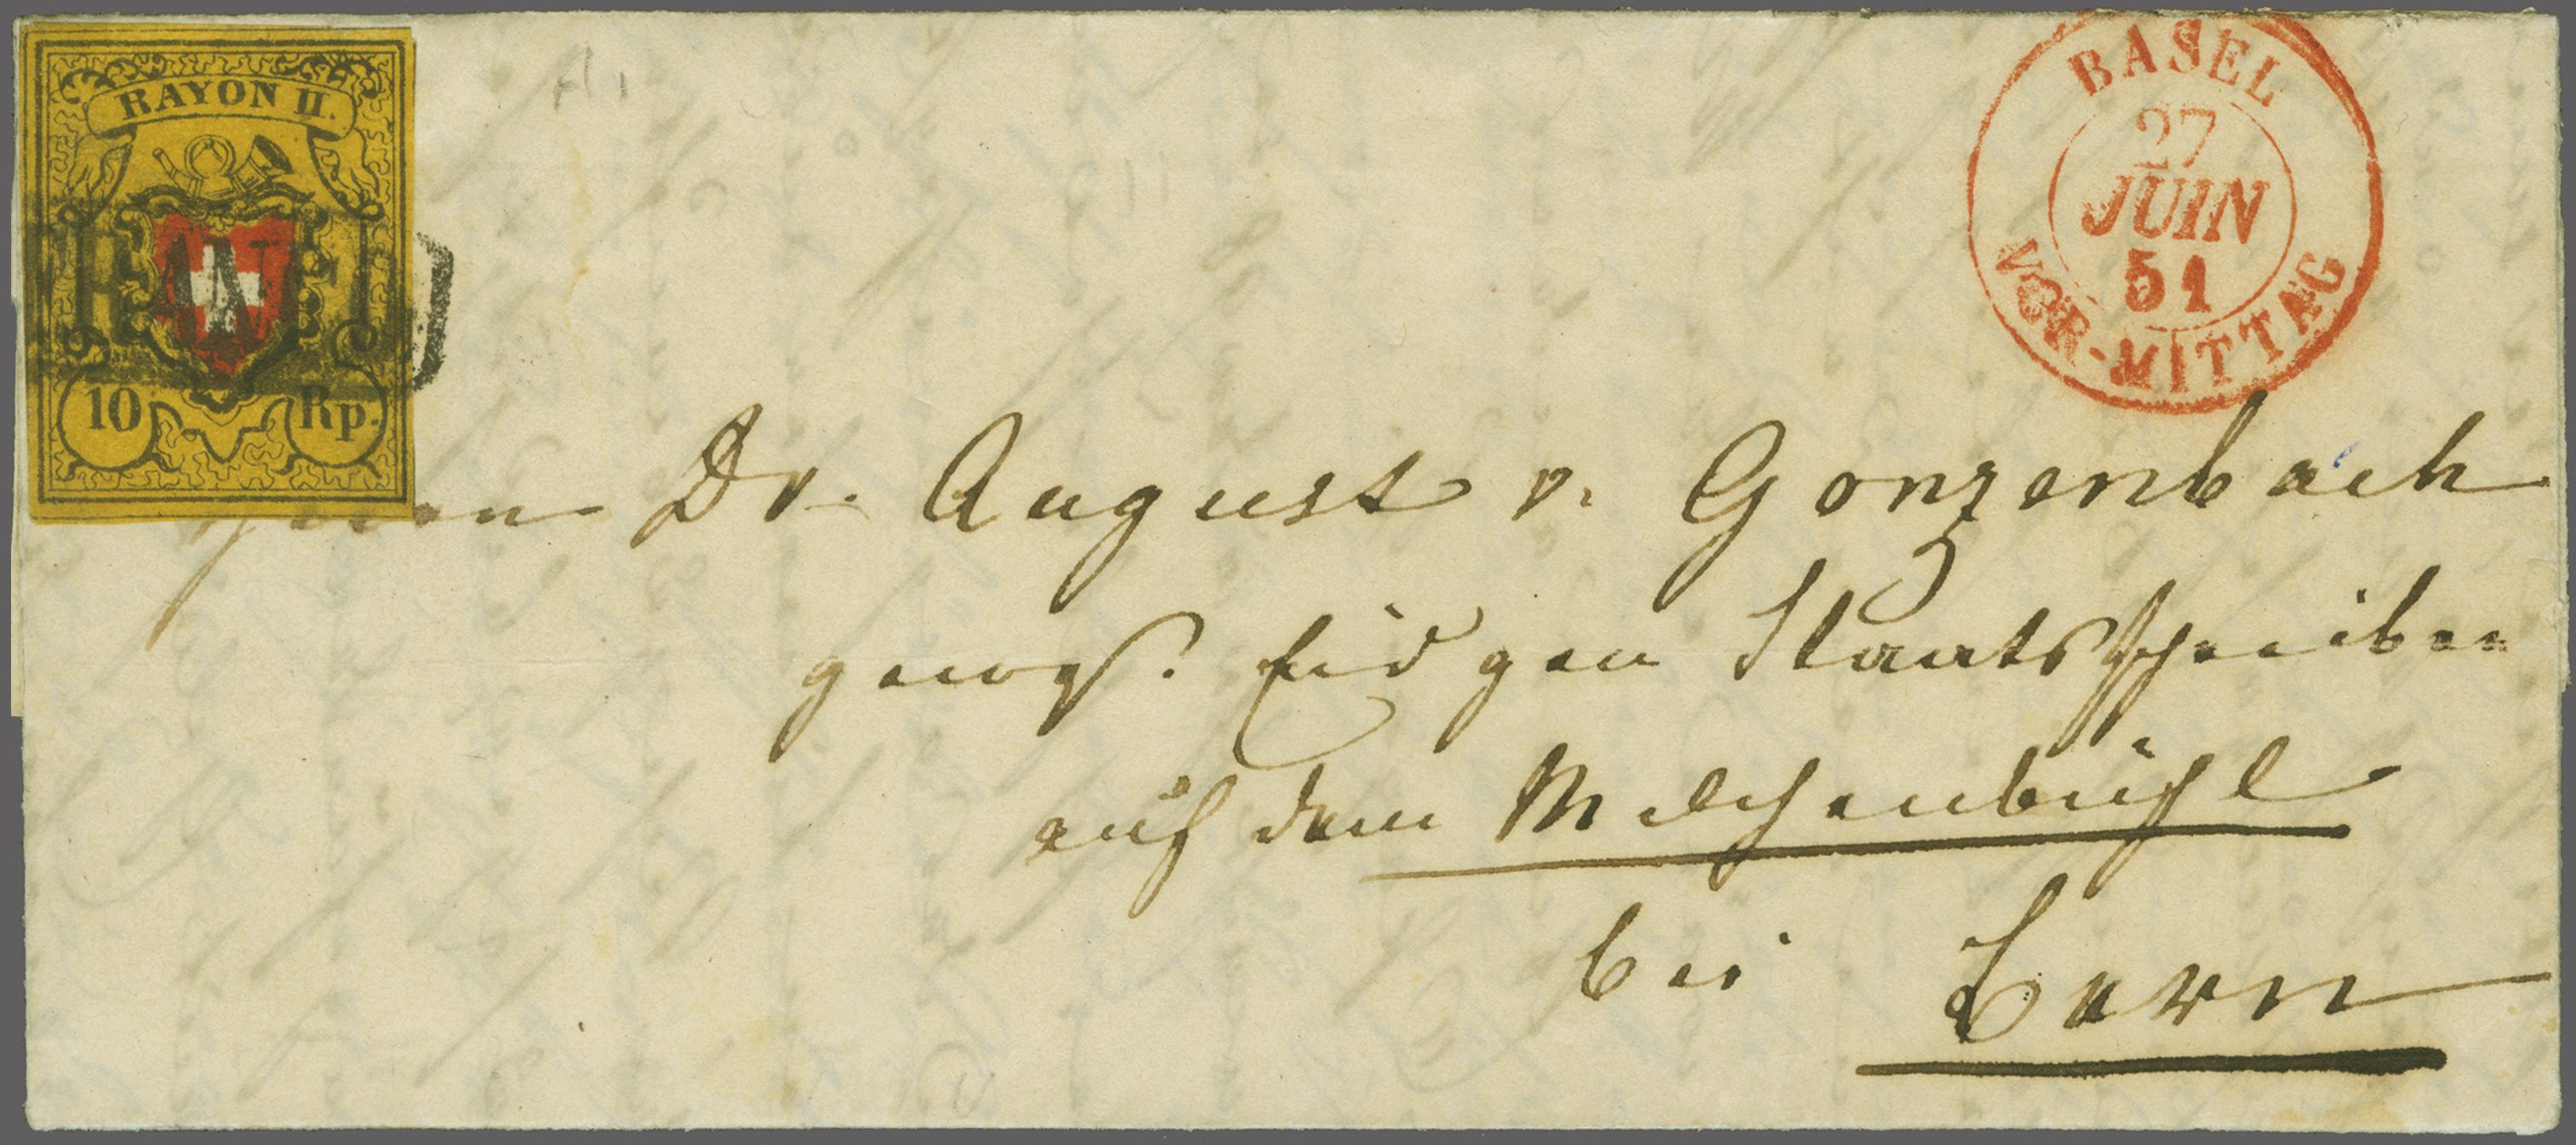 RAYON II.
FRANCO
10 Rp.
BASEL
27
JUIN
51
VOR-MITTAG
Herrn Dr. August v. Gonzenbach
gewes. Eidgen Staatsschreiber
auf dem Melchenbühl
bei Bern